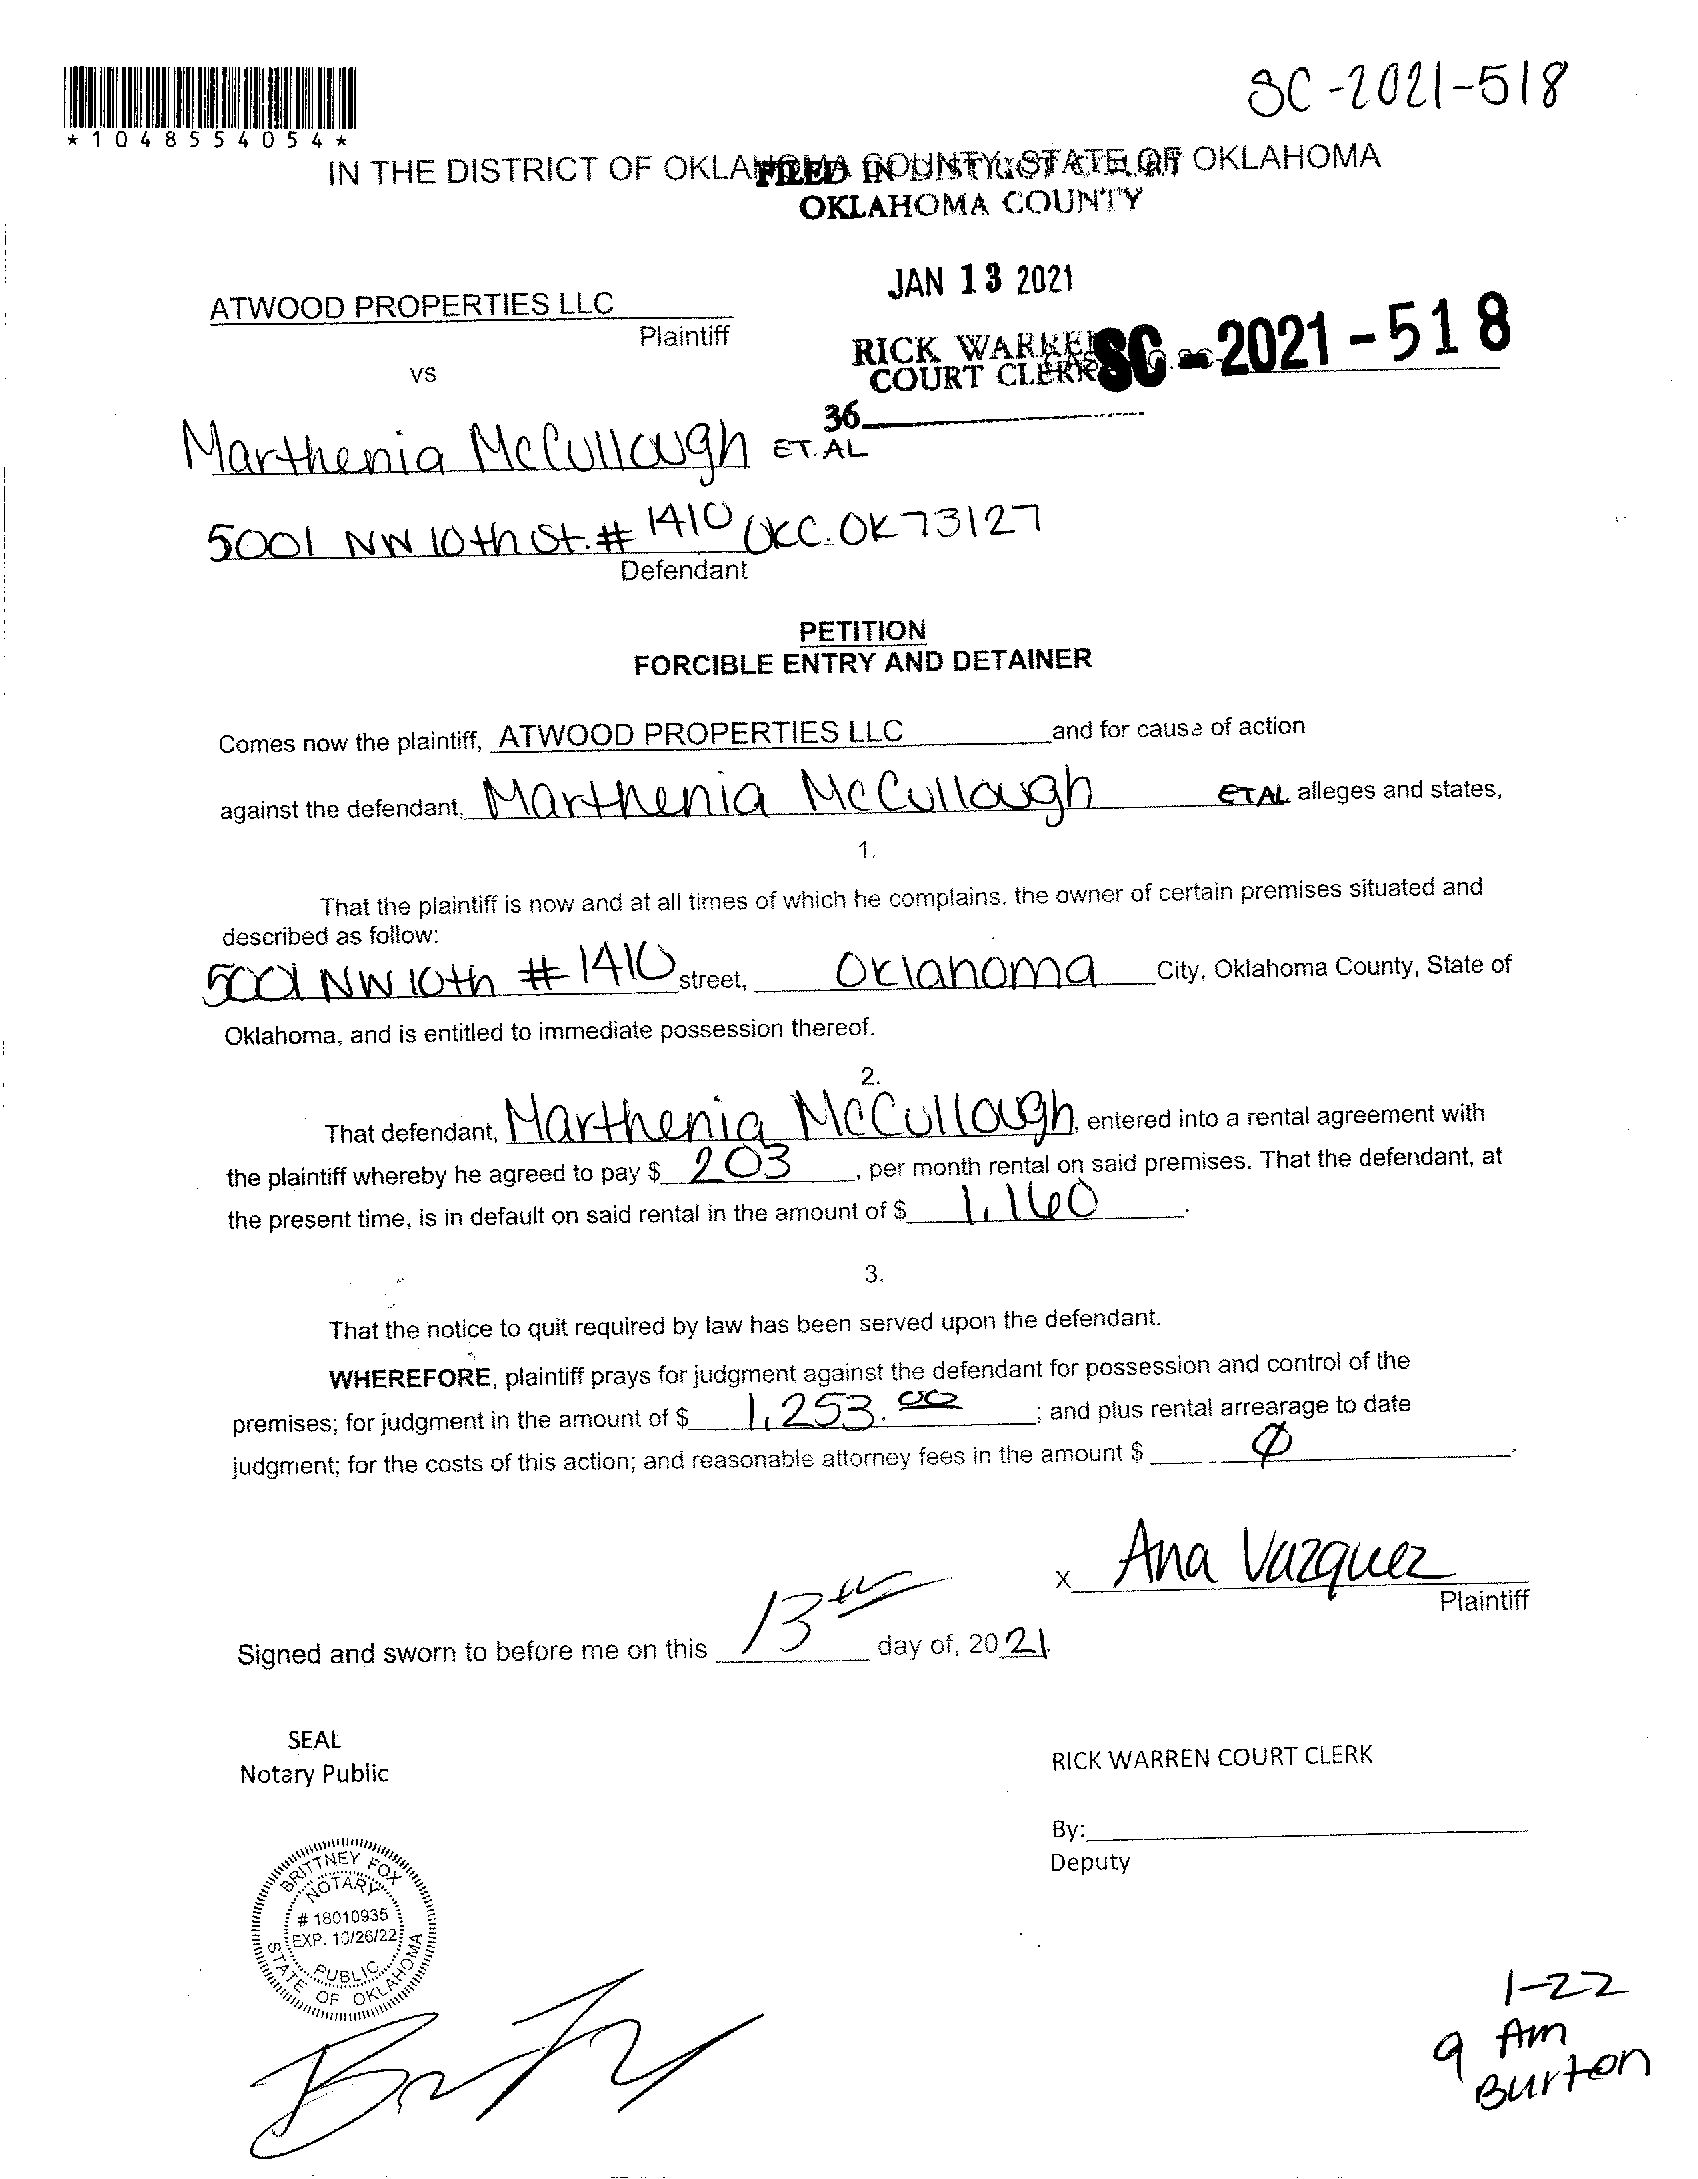 SC-2021-518
*1048554054*
IN THE DISTRICT OF OKLAHOMA COUNTY, STATE OF OKLAHOMA
FILED IN DISTRICT COURT
OKLAHOMA COUNTY
JAN 13 2021
ATWOOD PROPERTIES LLC
Plaintiff
RICK WARREN
COURT CLERK
SC - 2021 - 518
vs
36
Marthenia McCullough ET. AL
5001 NW 10th St. # 1410 OKC. OK 73127
Defendant
PETITION
FORCIBLE ENTRY AND DETAINER
Comes now the plaintiff, ATWOOD PROPERTIES LLC and for cause of action
against the defendant, Marthenia McCullough ETAL alleges and states,
1.
That the plaintiff is now and at all times of which he complains, the owner of certain premises situated and
described as follow:
5001 NW 10th # 1410 street, Oklahoma City, Oklahoma County, State of
Oklahoma, and is entitled to immediate possession thereof.
2.
That defendant, Marthenia McCullough, entered into a rental agreement with
the plaintiff whereby he agreed to pay $ 203, per month rental on said premises. That the defendant, at
the present time, is in default on said rental in the amount of $ 1,160.
3.
That the notice to quit required by law has been served upon the defendant.
WHEREFORE, plaintiff prays for judgment against the defendant for possession and control of the
premises; for judgment in the amount of $ 1,253.00; and plus rental arrearage to date
judgment; for the costs of this action; and reasonable attorney fees in the amount $ Ø.
x Ana Vazquez
Plaintiff
Signed and sworn to before me on this 13th day of, 2021.
SEAL
Notary Public
RICK WARREN COURT CLERK
By:
Deputy
BRITTNEY FOX
NOTARY
# 18010935
EXP. 10/26/22
PUBLIC
STATE OF OKLAHOMA
1-22
9 Am
Burton